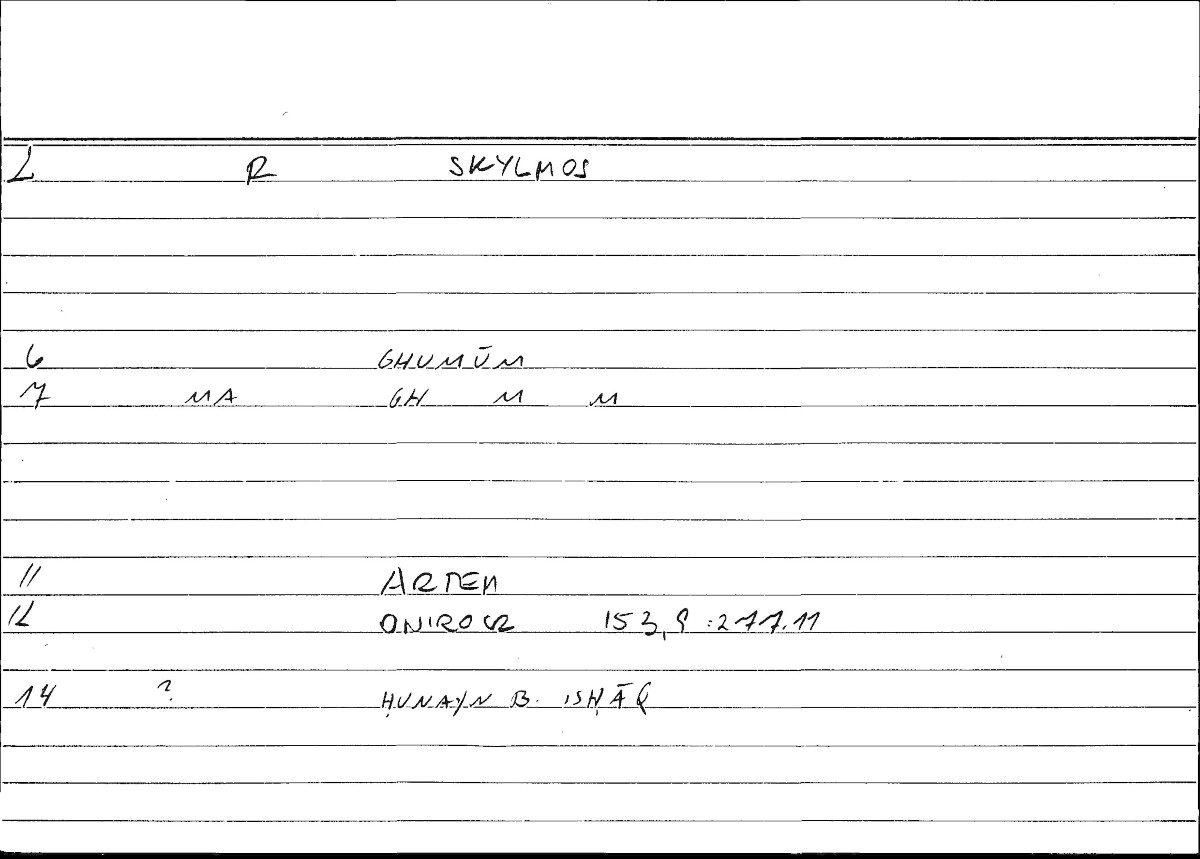 2 R SKYLMOS
6 GHUMŪM
7 MA GH M M
11 ARTEM
12 ONIROCR 153,9:277.11
14 ? ḤUNAYN B. ISḤĀQ